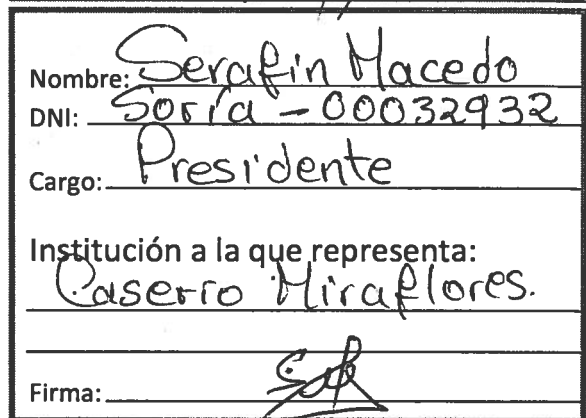 Nombre: Serafin Macedo
DNI: Soria - 00032932
Cargo: Presidente
Institución a la que representa:
Caserio Miraflores.
Firma: